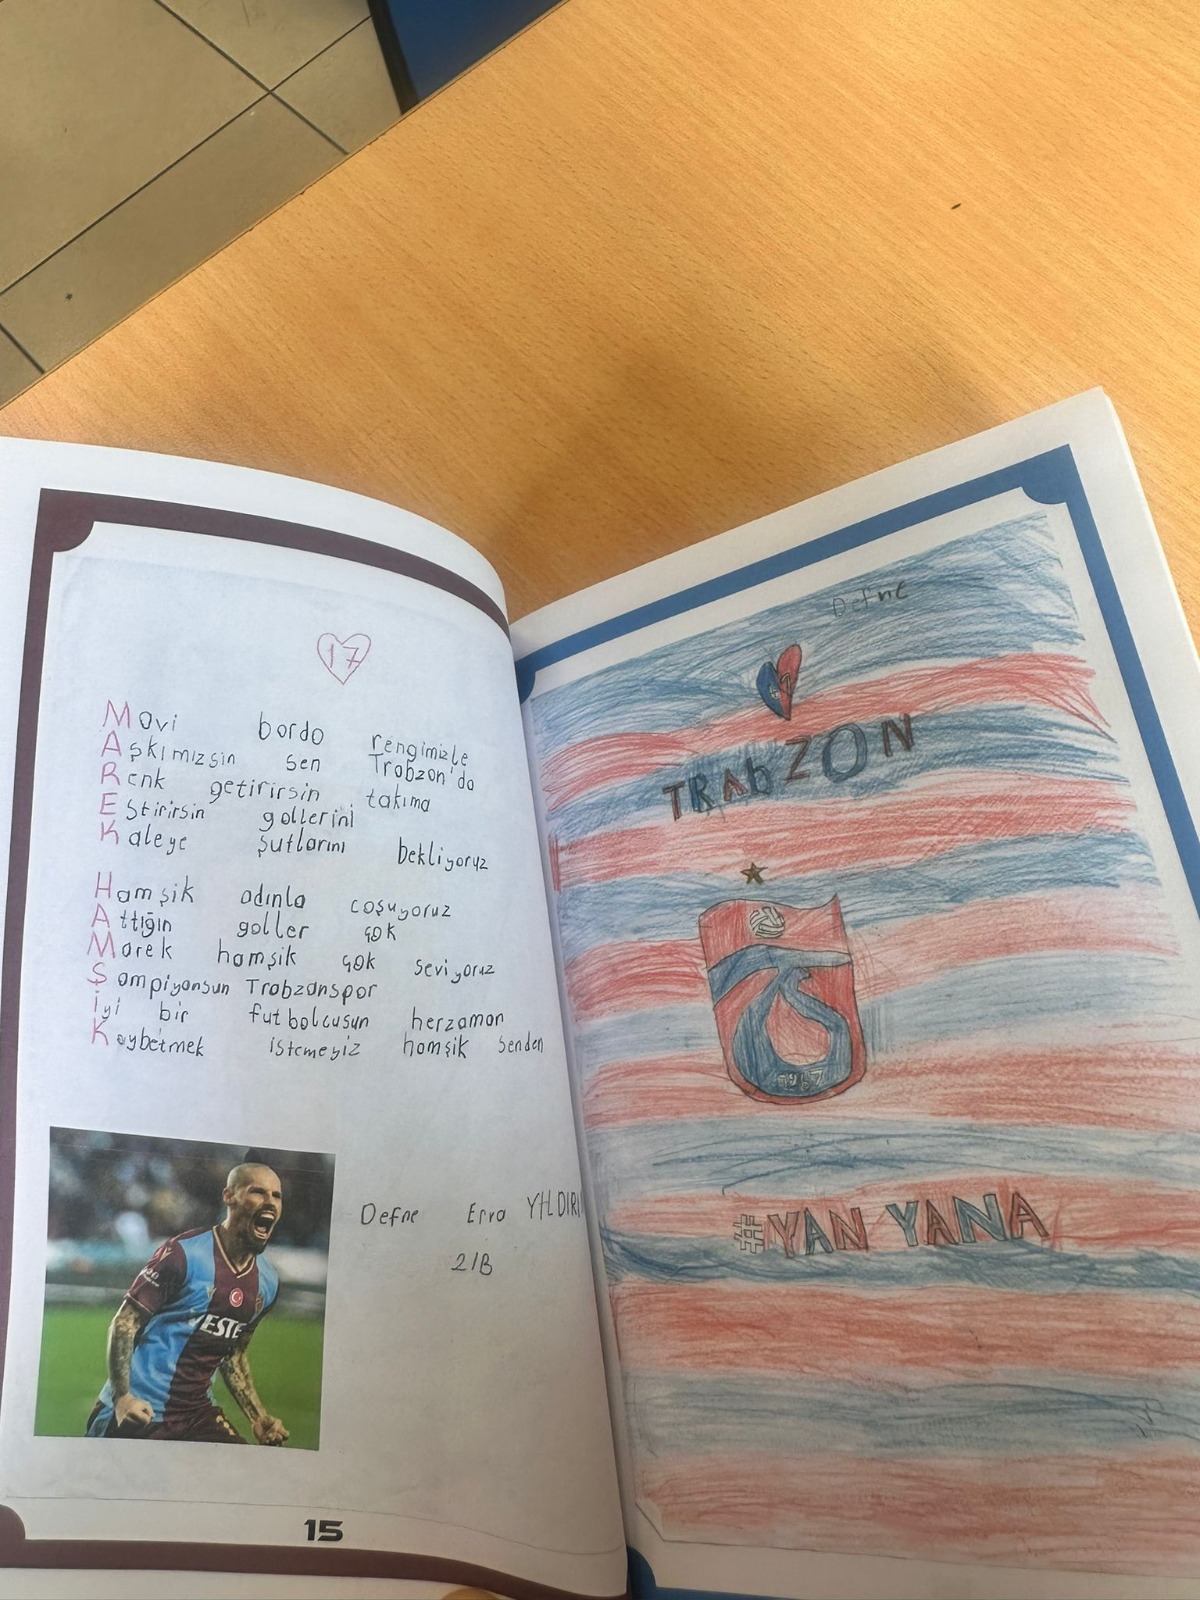 17
Mavi bordo rengimizle
Aşkımızsın sen Trabzon'da
Renk getirirsin takıma
Estirirsin gollerini
Kaleye şutlarını bekliyoruz
Hamşik adınla coşuyoruz
Attığın goller çok
Marek hamşik çok seviyoruz
Şampiyonsun Trabzonspor
İyi bir futbolcusun herzaman
Kaybetmek istemeyiz hamşik senden
Defne Erva YILDIRI
2/B
15
Defne
TRAbZON
1967
#YAN YANA